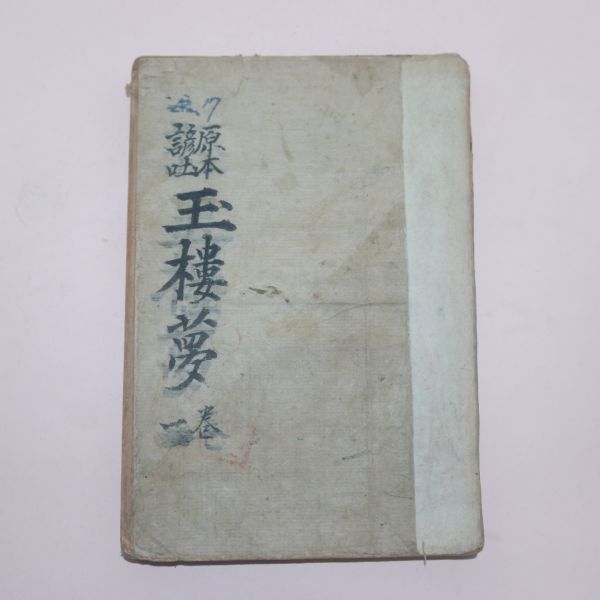 原本
諺吐
玉樓夢
卷一